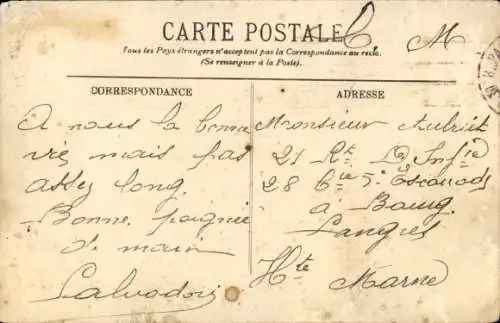 CARTE POSTALE
C M
Tous les Pays étrangers n'acceptent pas la Correspondance au recto.
(Se renseigner à la Poste).
CORRESPONDANCE
A nous la bonne
vie mais pas
assez long.
Bonne poignée
de main
Salvadori
ADRESSE
Monsieur
21 Rt D'Inf.ie
28 Cie 5e Escouade
à Bourg
Langres
Hte Marne